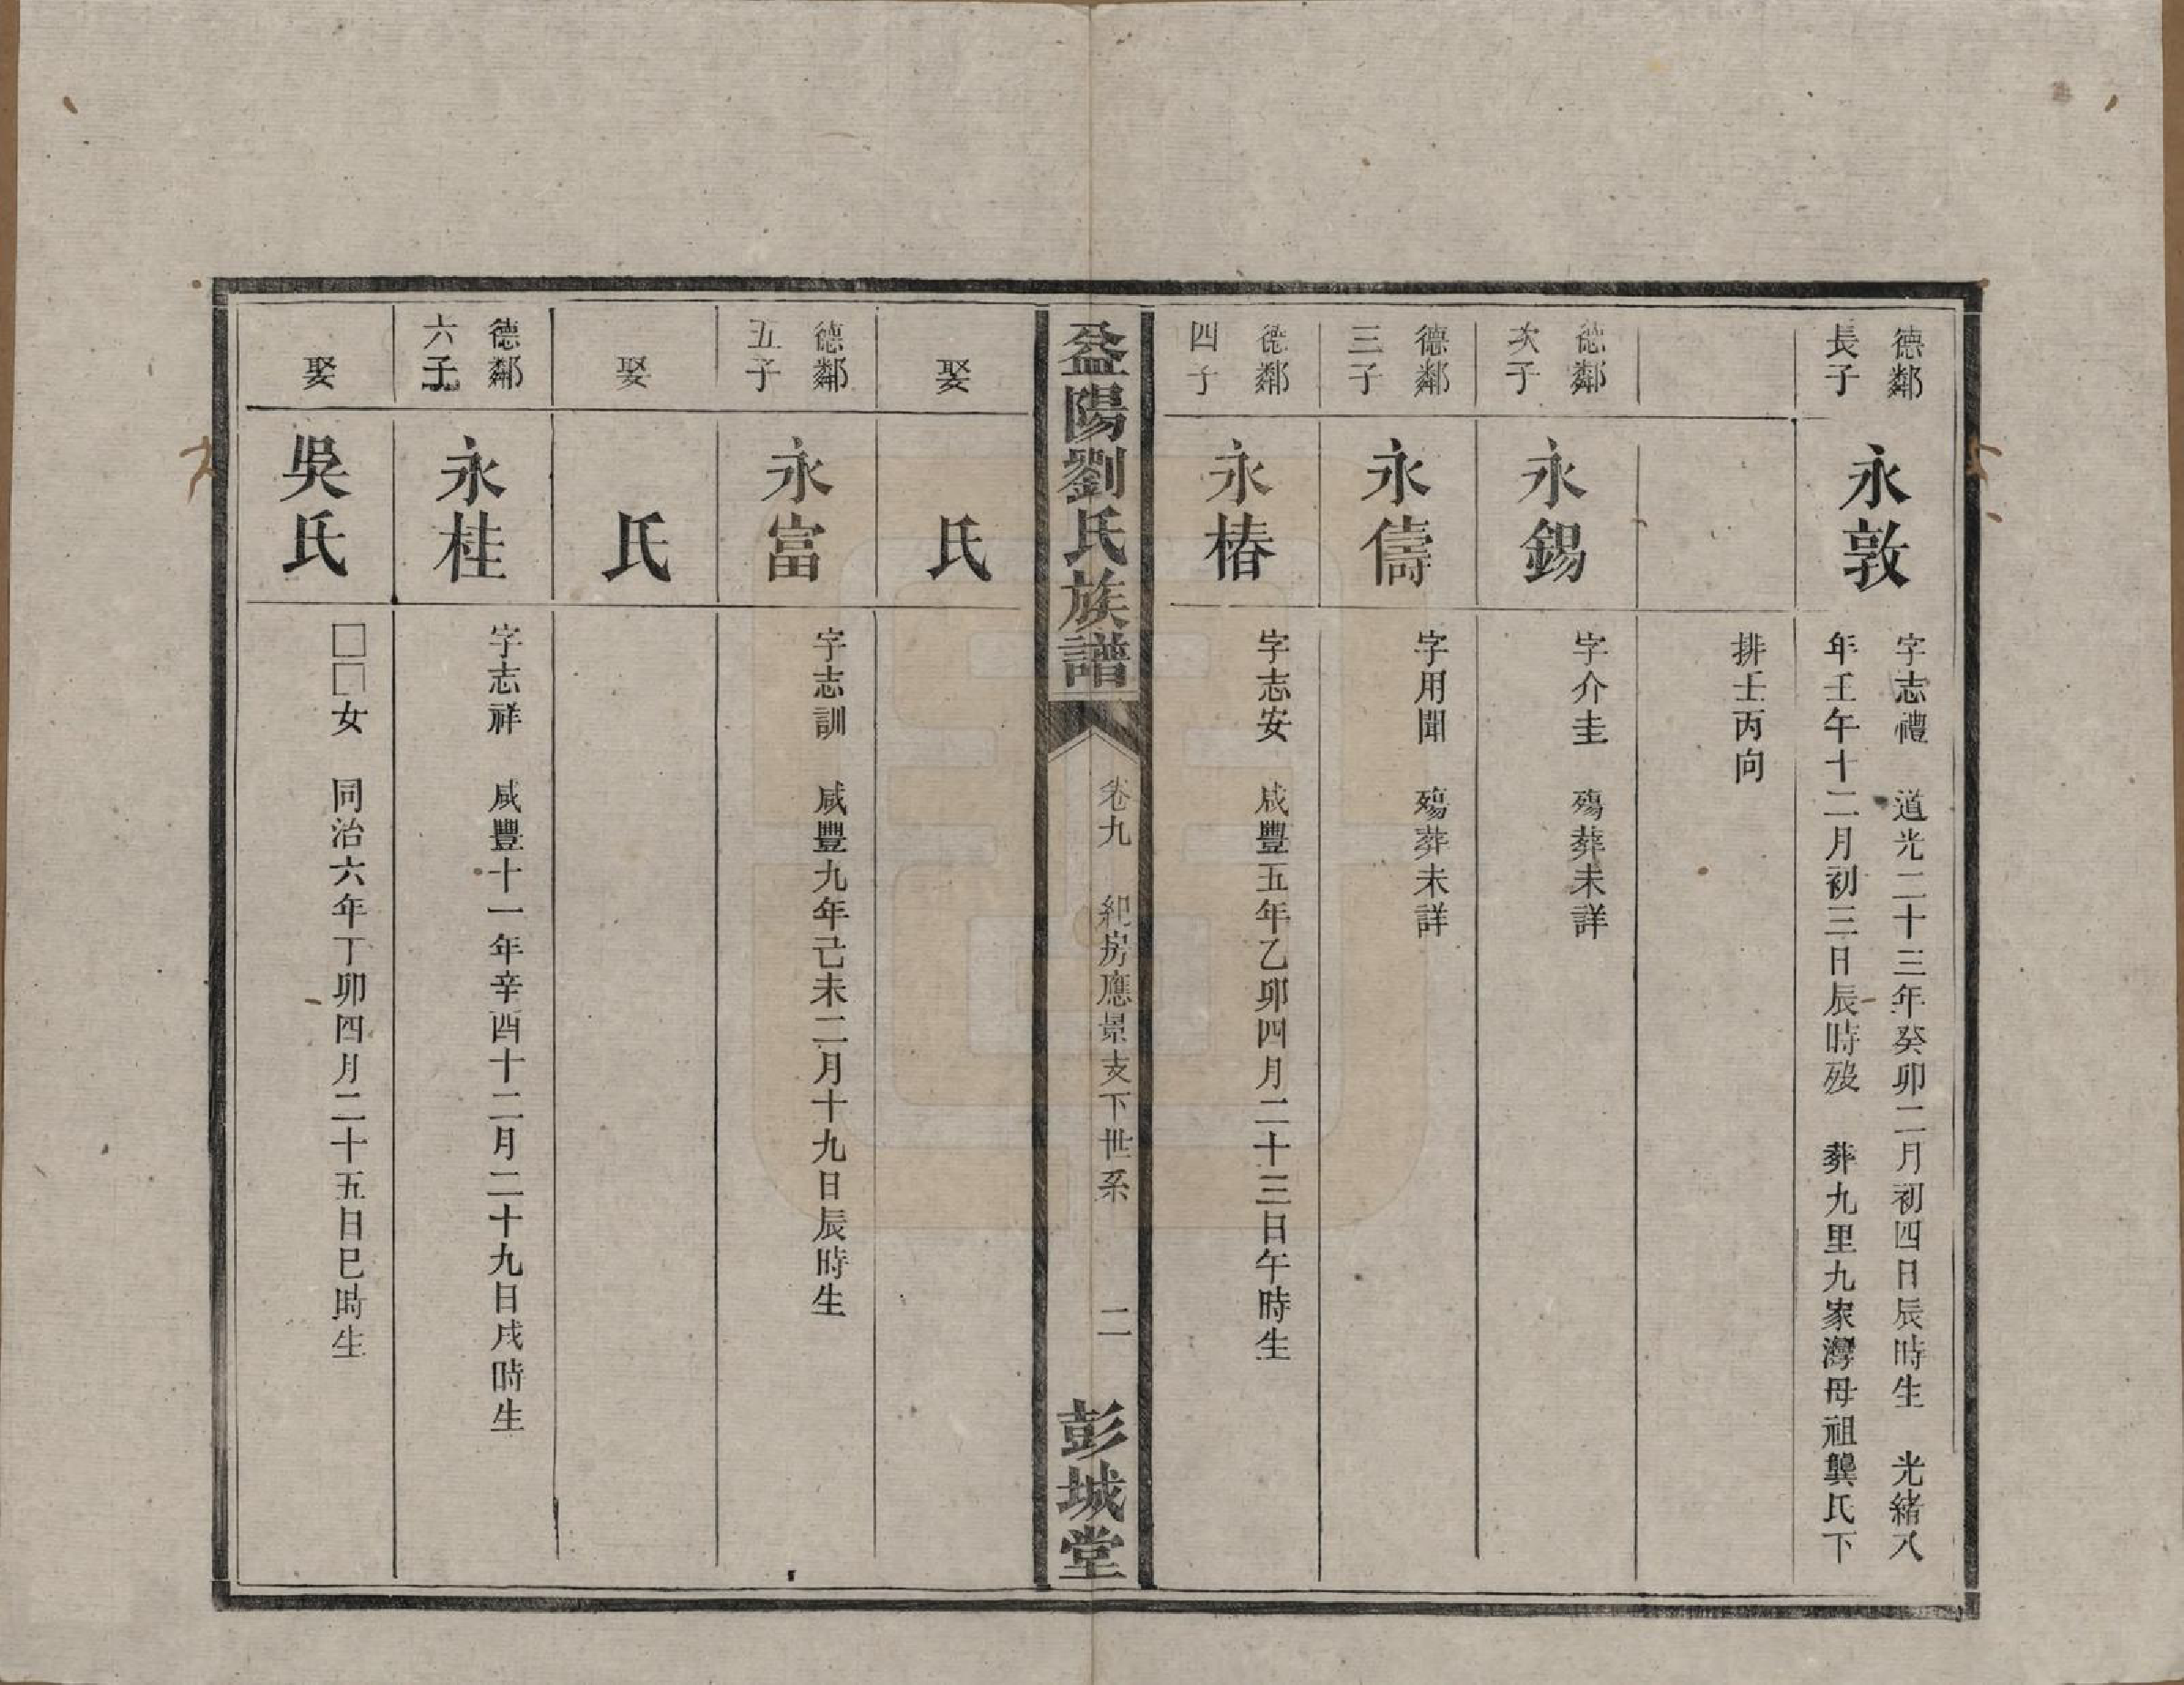 德鄰
長子
永敦
字志禮　道光二十三年癸卯二月初四日辰時生　光緒八
年壬午十二月初三日辰時殁　葬九里九家灣母祖龔氏下
排壬丙向
德鄰
次子
永錫
字介圭　殤葬未詳
德鄰
三子
永儔
字用聞　殤葬未詳
德鄰
四子
永椿
字志安　咸豐五年乙卯四月二十三日午時生
益陽劉氏族譜
卷九　紀房應景支下世系　二
彭城堂
娶
氏
德鄰
五子
永富
字志訓　咸豐九年己未二月十九日辰時生
娶
氏
德鄰
六子
永桂
字志祥　咸豐十一年辛酉十二月二十九日戌時生
娶
吳氏
□□女　同治六年丁卯四月二十五日巳時生